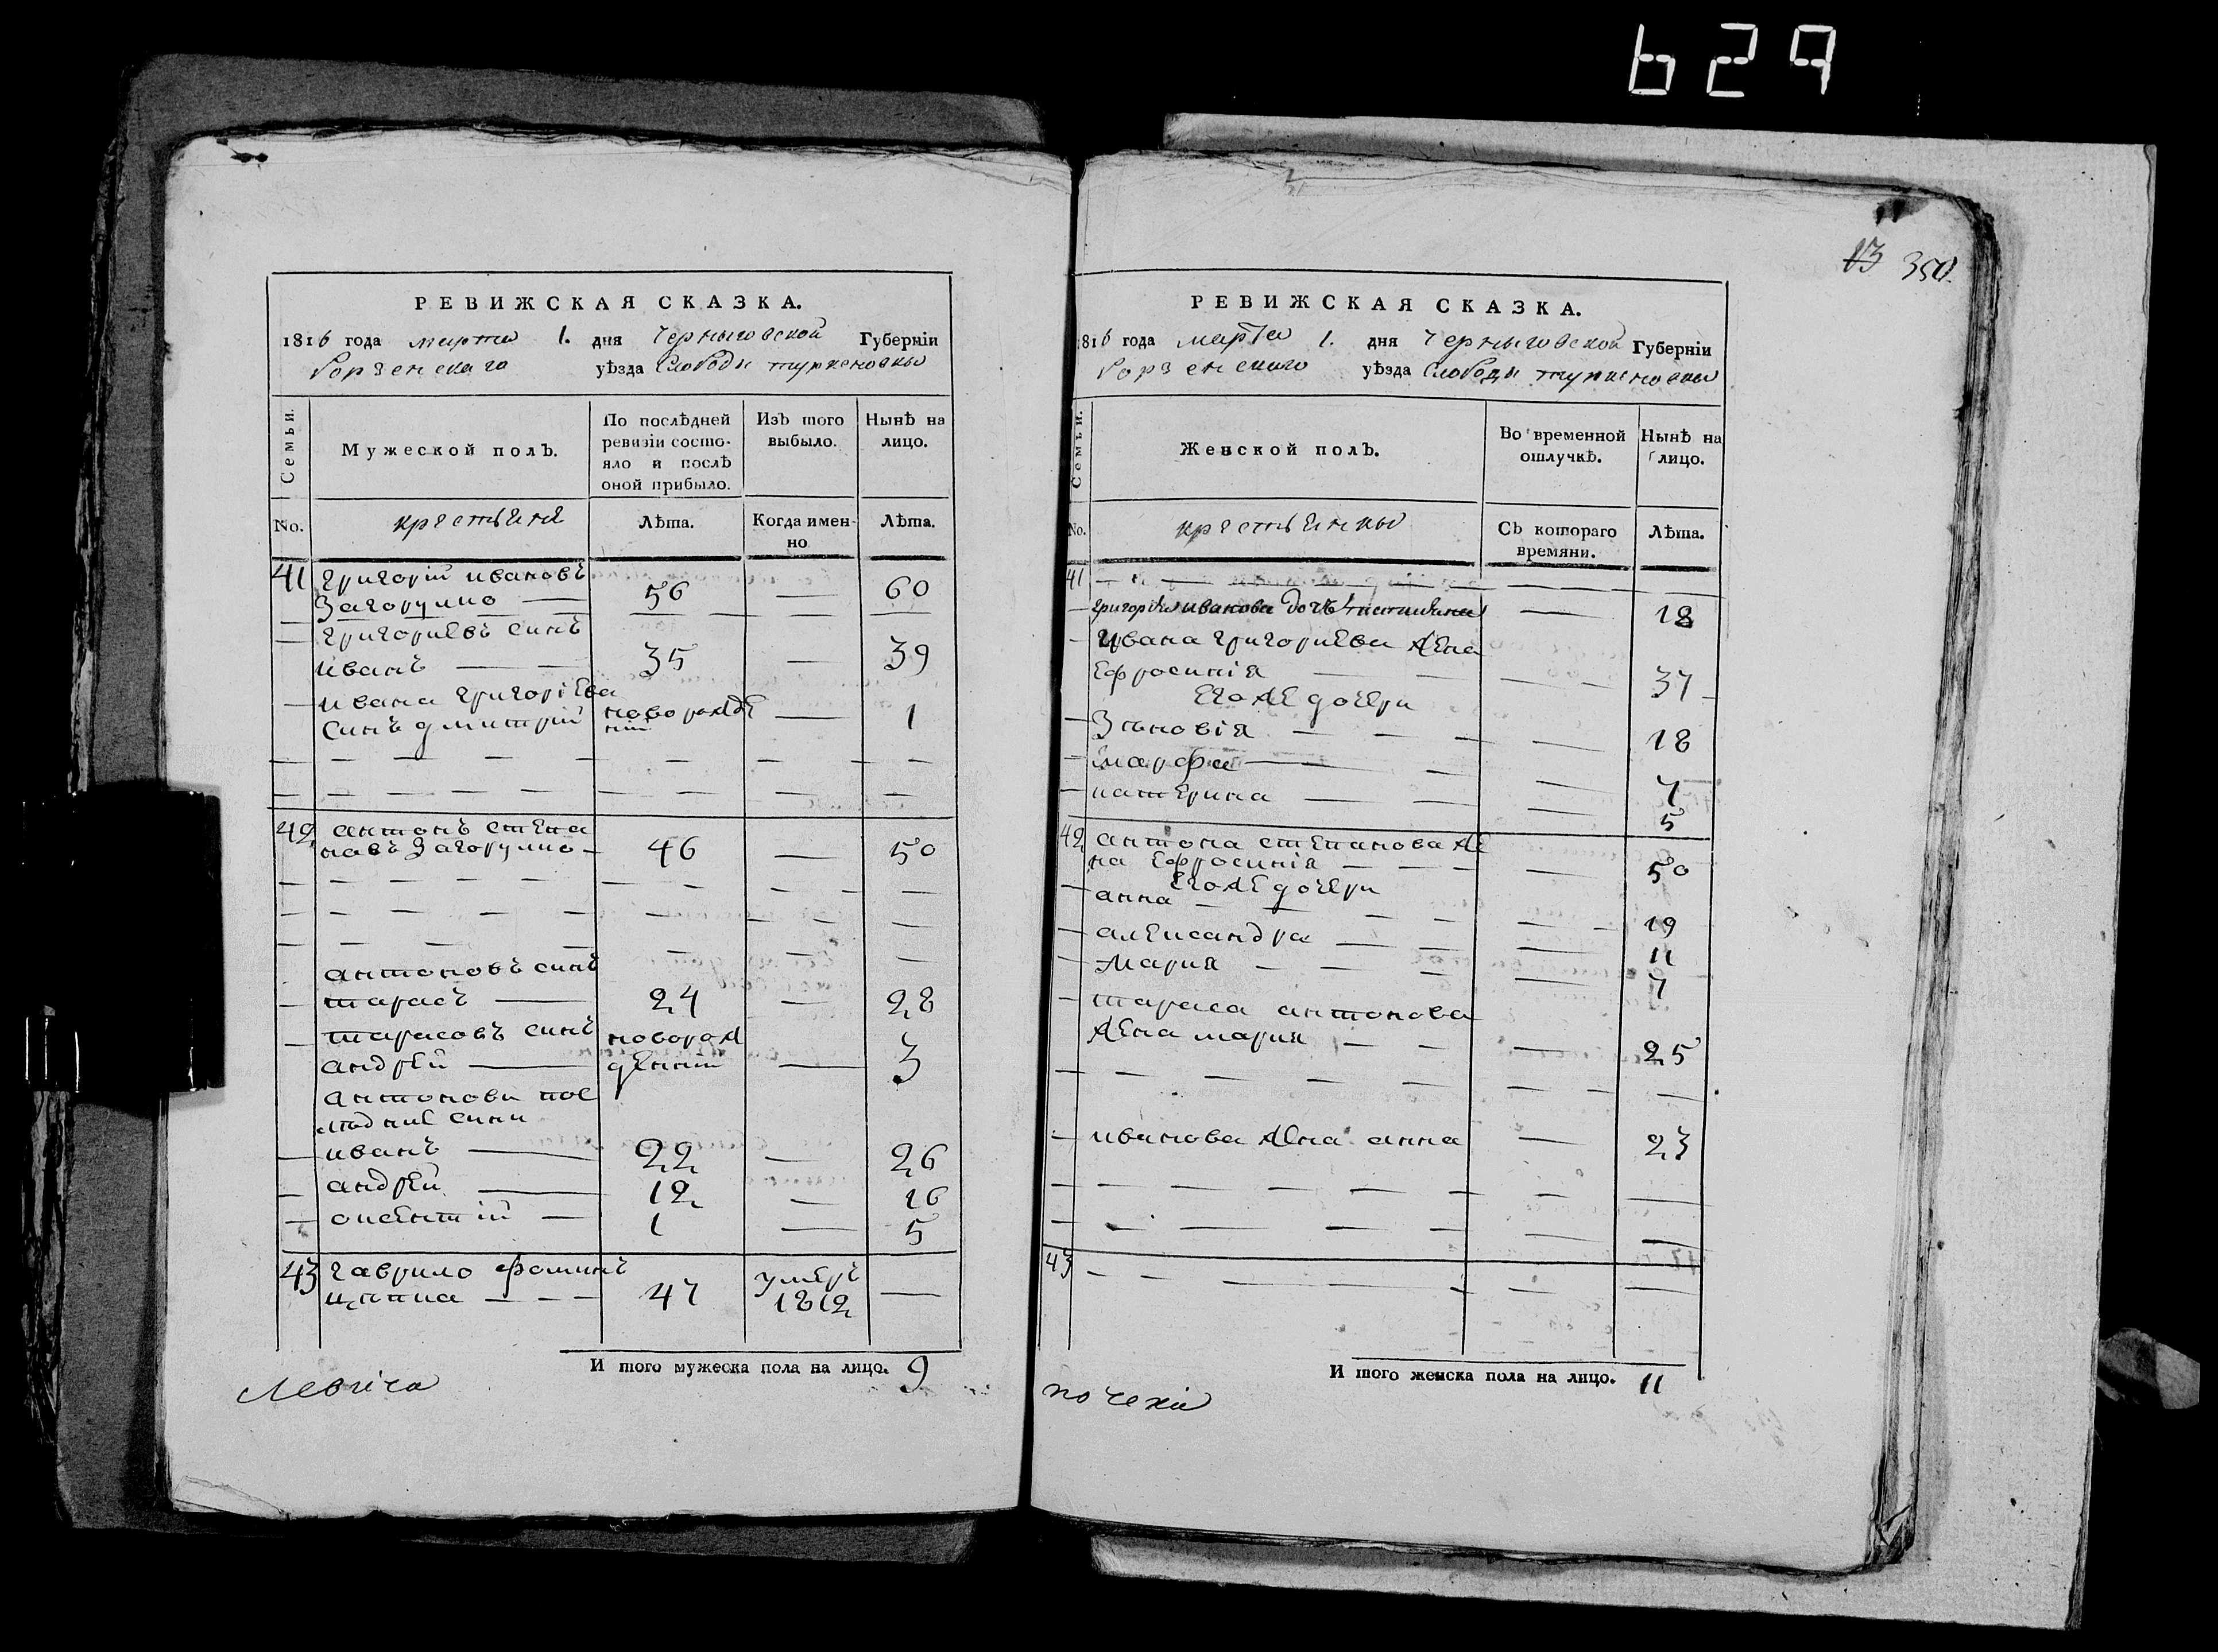 629
РЕВИЖСКАЯ СКАЗКА.
1816 года марта 1. дня Черныговской Губерніи
Борзенскаго уѣзда Слободы туркеновкы
Семьи.
Мужеской полъ.
По послѣдней ревизіи состояло и послѣ оной прибыло.
Изъ того выбыло.
Нынѣ на лицо.
No.
крестьяне
Лѣта.
Когда именно
Лѣта.
41 григорій ивановъ
Загорулко — 56 — 60
григориевъ синъ
иванъ — 35 — 39
ивана григоріева
синъ дмитрій новорожденій — 1
42 антонъ степановъ Загорулко — 46 — 50
антоновъ синъ
тарасъ — 24 — 28
тарасовъ синъ
андрей — новорожденній — 3
антонови последние сини
иванъ — 22 — 26
андрей — 12 — 16
1 — 5
43 гаврило фоминъ
47 умеръ 1812 —
И того мужеска пола на лицо. 9
13 350
РЕВИЖСКАЯ СКАЗКА.
1816 года марта 1. дня Черныговской Губерніи
Борзенского уѣзда Слободы туркеновкы
Семьи.
Женской полъ.
Во временной отлучкѣ.
Нынѣ на лицо.
No.
крестьянкы
Съ котораго времяни.
Лѣта.
41
иванова дочь — 18
Ивана григориева жена
Ефросинія — 37
Его же дочери
Зиновія — 18
марфа — 7
катерина — 5
42 антона степанова жена Ефросинія — 50
Его же дочери
анна — 19
александра — 11
Мария — 7
тараса антонова
жена мария — 25
иванова жена анна — 23
43
И того женска пола на лицо. 11